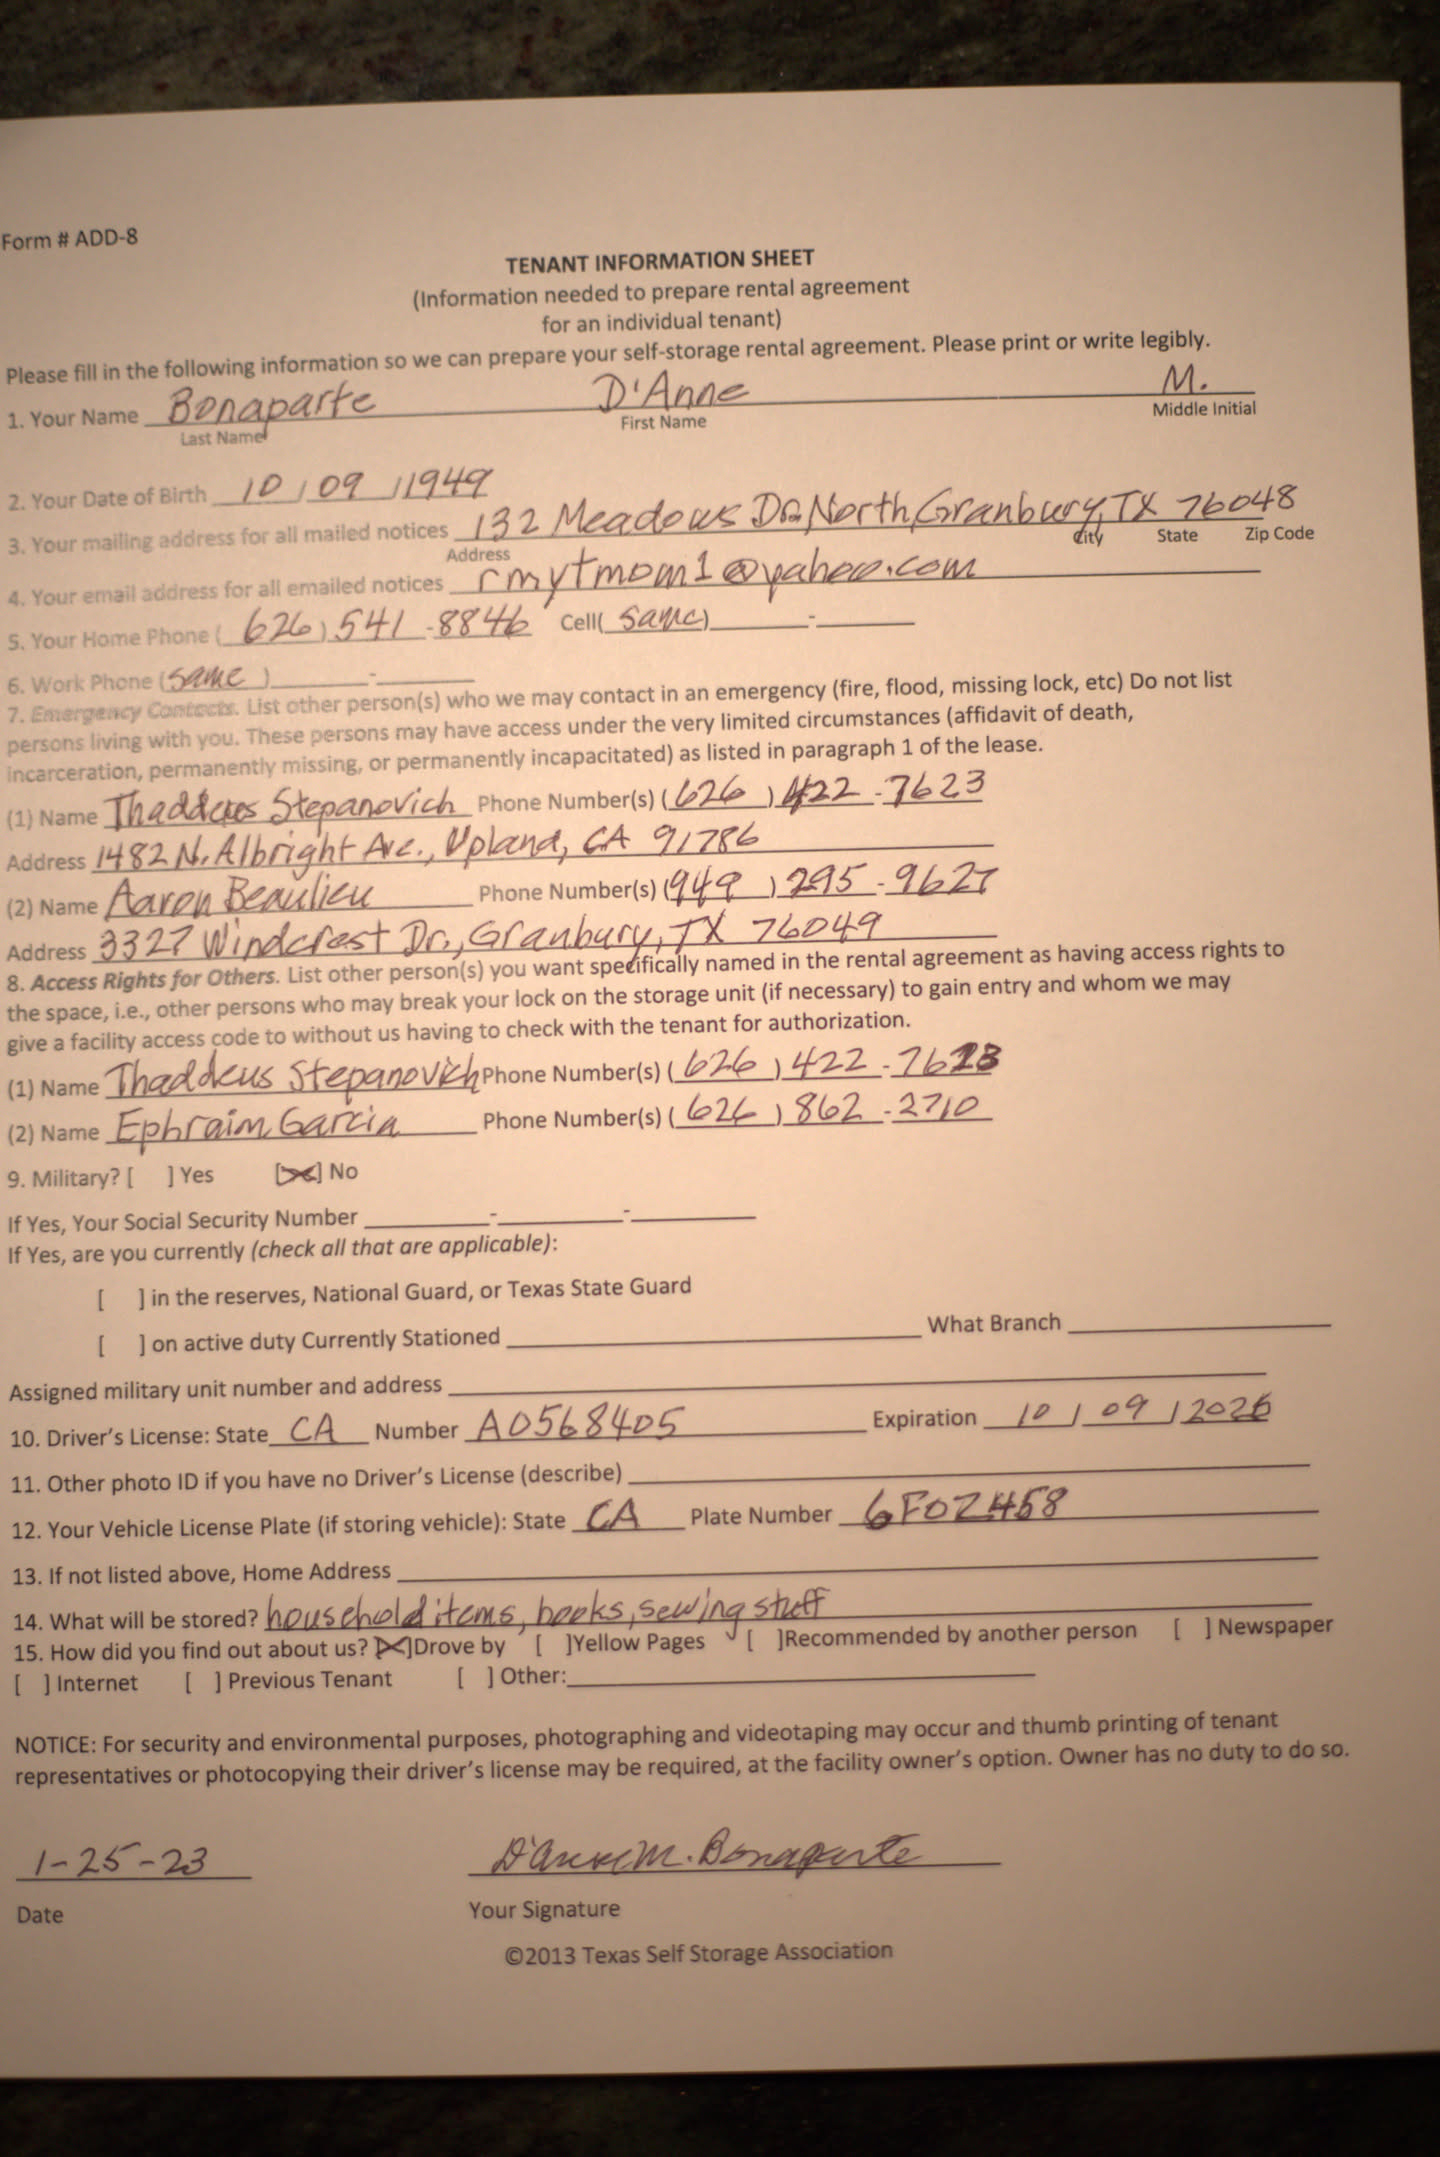 Form # ADD-8
TENANT INFORMATION SHEET
(Information needed to prepare rental agreement
for an individual tenant)
Please fill in the following information so we can prepare your self-storage rental agreement. Please print or write legibly.
1. Your Name Bonaparte D'Anne M.
Last Name First Name Middle Initial
2. Your Date of Birth 10 / 09 / 1949
3. Your mailing address for all mailed notices 132 Meadows Dr. North, Granbury, TX 76048
Address City State Zip Code
4. Your email address for all emailed notices rmytmom1@yahoo.com
5. Your Home Phone ( 626 ) 541 - 8846 Cell( same ) -
6. Work Phone ( same ) -
7. Emergency Contacts. List other person(s) who we may contact in an emergency (fire, flood, missing lock, etc) Do not list
persons living with you. These persons may have access under the very limited circumstances (affidavit of death,
incarceration, permanently missing, or permanently incapacitated) as listed in paragraph 1 of the lease.
(1) Name Thaddeus Stepanovich Phone Number(s) ( 626 ) 422 - 7623
Address 1482 N. Albright Ave., Upland, CA 91786
(2) Name Aaron Beaulieu Phone Number(s) ( 949 ) 295 - 9627
Address 3327 Windcrest Dr., Granbury, TX 76049
8. Access Rights for Others. List other person(s) you want specifically named in the rental agreement as having access rights to
the space, i.e., other persons who may break your lock on the storage unit (if necessary) to gain entry and whom we may
give a facility access code to without us having to check with the tenant for authorization.
(1) Name Thaddeus Stepanovich Phone Number(s) ( 626 ) 422 - 7623
(2) Name Ephraim Garcia Phone Number(s) ( 626 ) 862 - 2710
9. Military? [ ] Yes [X] No
If Yes, Your Social Security Number - -
If Yes, are you currently (check all that are applicable):
[ ] in the reserves, National Guard, or Texas State Guard
[ ] on active duty Currently Stationed What Branch
Assigned military unit number and address
10. Driver's License: State CA Number A0568405 Expiration 10 / 09 / 2026
11. Other photo ID if you have no Driver's License (describe)
12. Your Vehicle License Plate (if storing vehicle): State CA Plate Number 6FOZ458
13. If not listed above, Home Address
14. What will be stored? household items, books, sewing stuff
15. How did you find out about us? [X]Drove by [ ]Yellow Pages [ ]Recommended by another person [ ] Newspaper
[ ] Internet [ ] Previous Tenant [ ] Other:
NOTICE: For security and environmental purposes, photographing and videotaping may occur and thumb printing of tenant
representatives or photocopying their driver's license may be required, at the facility owner's option. Owner has no duty to do so.
1-25-23 D'Anne M. Bonaparte
Date Your Signature
©2013 Texas Self Storage Association